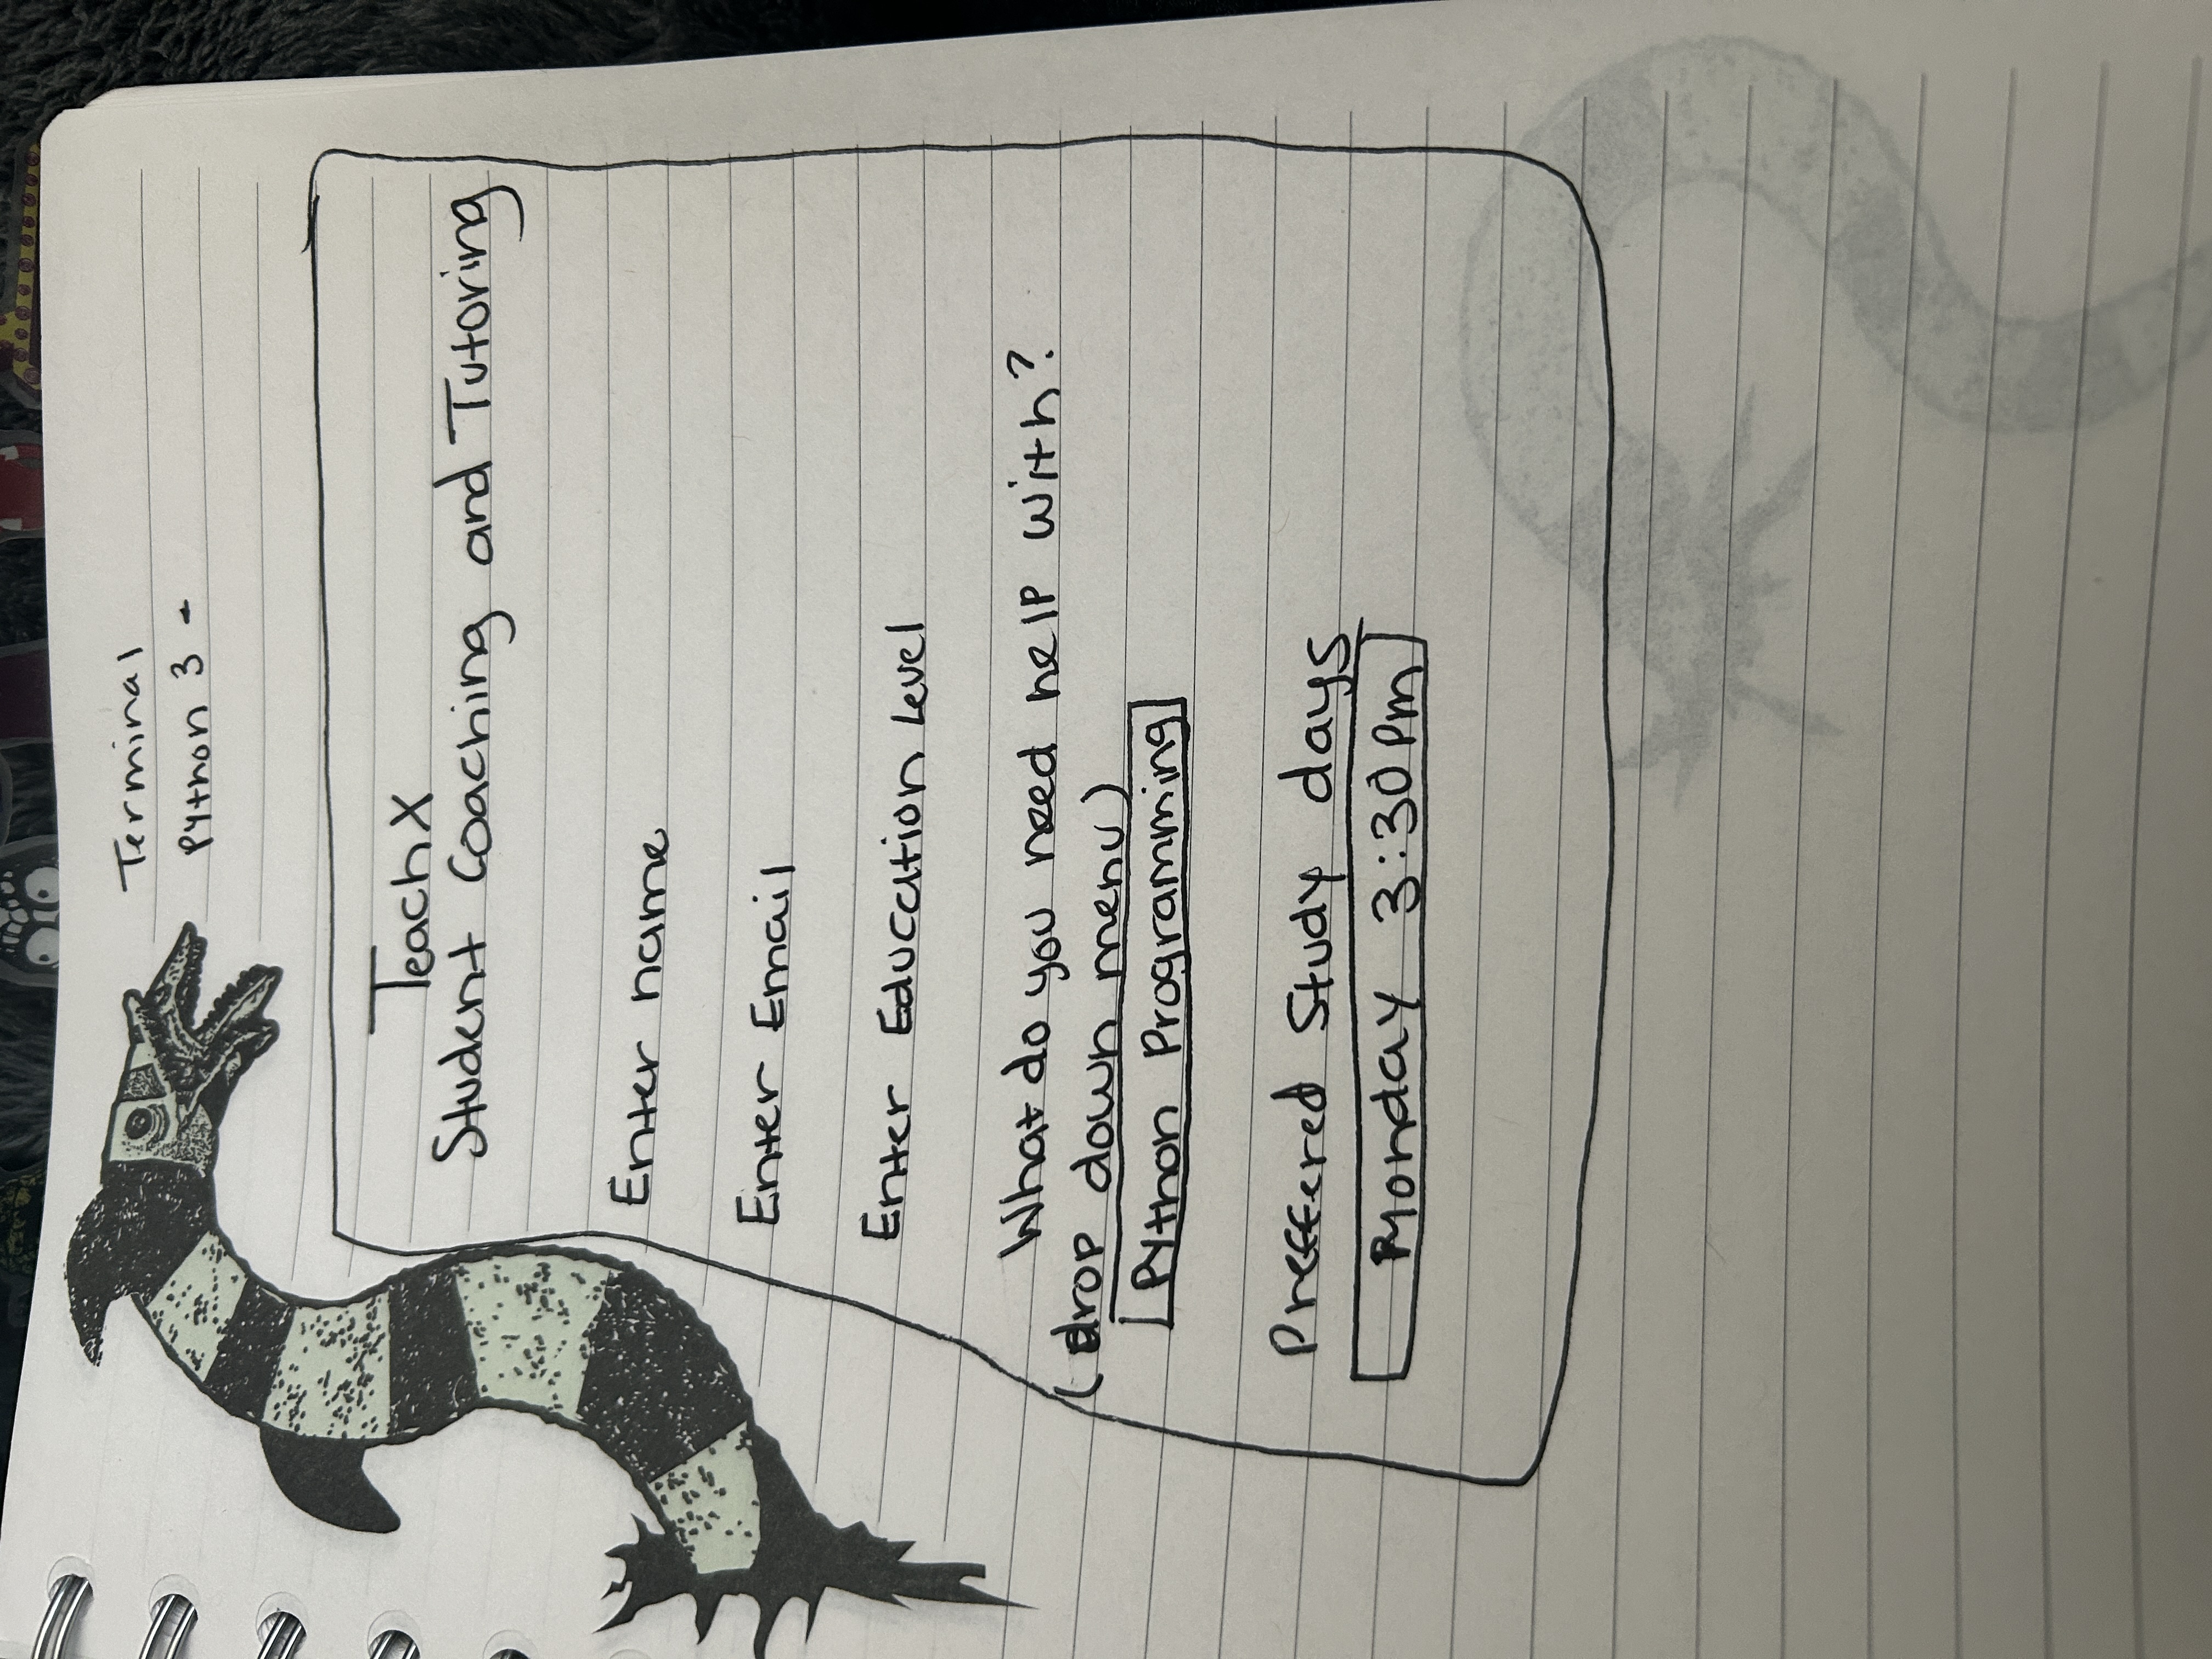 Terminal
Python 3 -
TeachX
Student Coaching and Tutoring
Enter name
Enter Email
Enter Education Level
What do you need help with?
(drop down menu)
Python Programming
Preffered Study days
Monday 3:30 pm